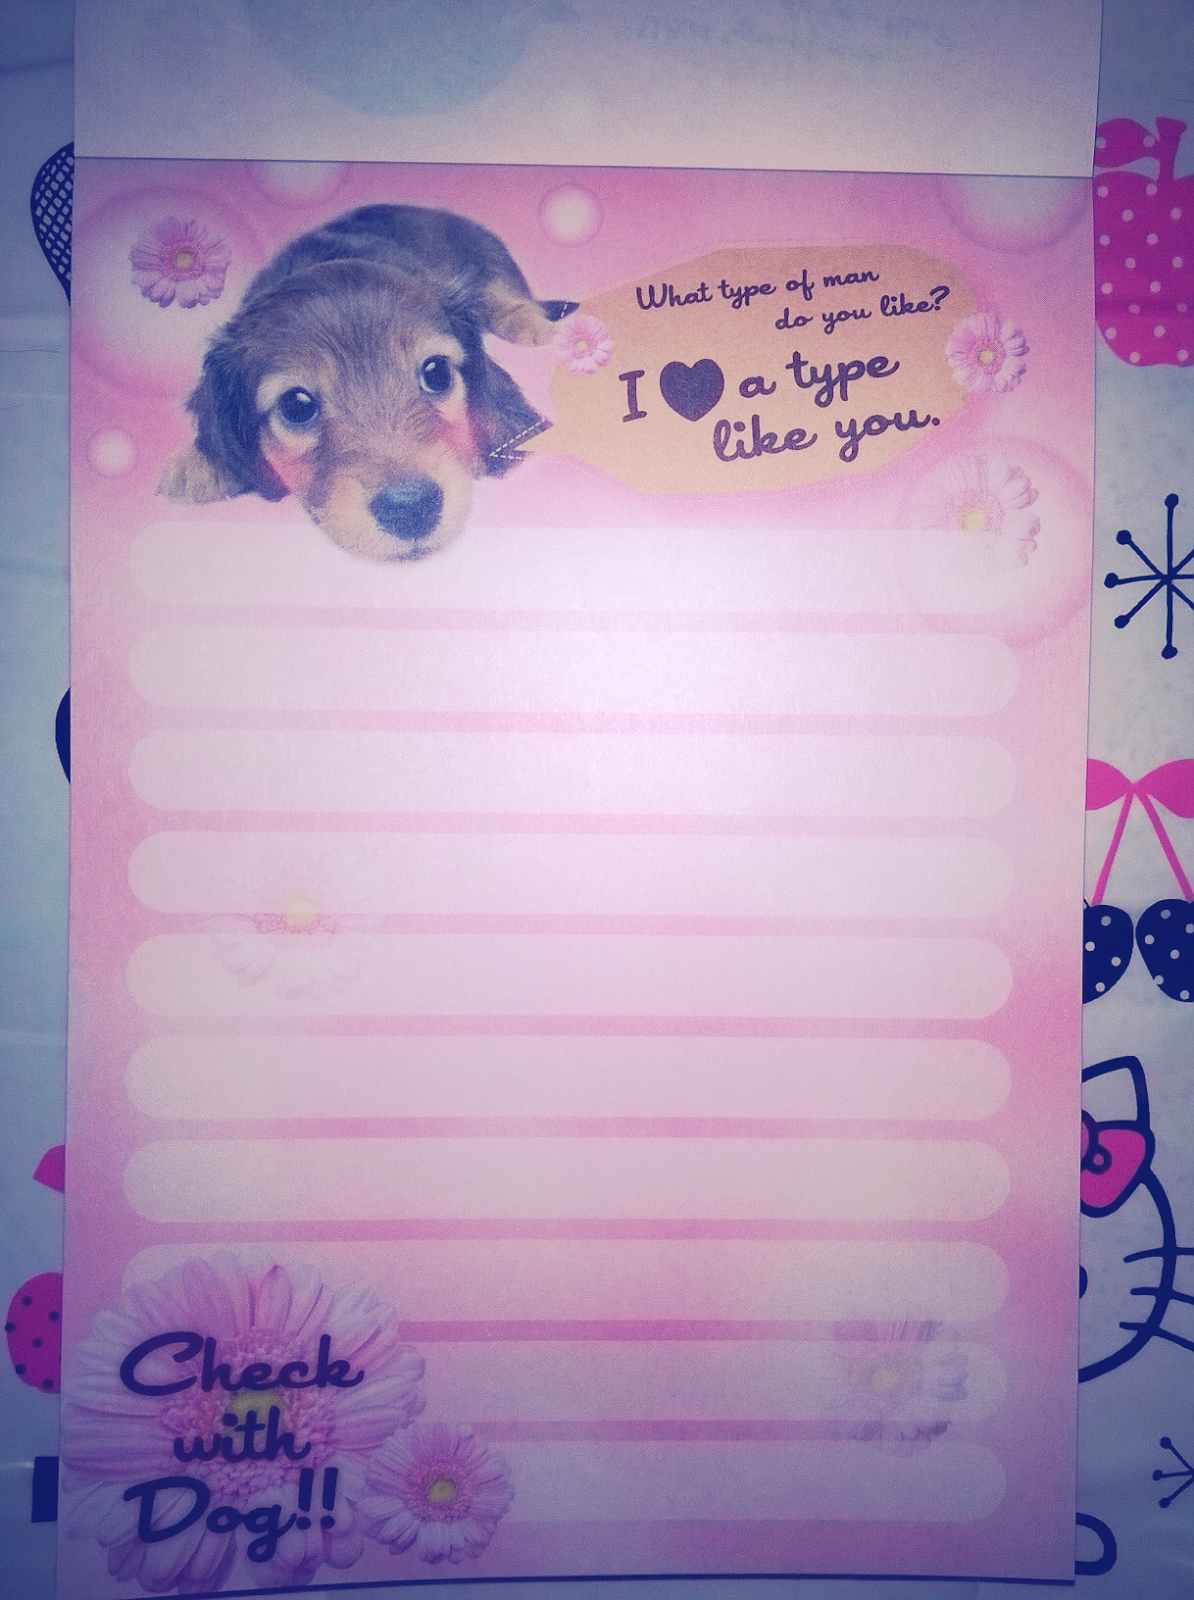 What type of man
do you like?
I ♥ a type
like you.
Check
with
Dog!!